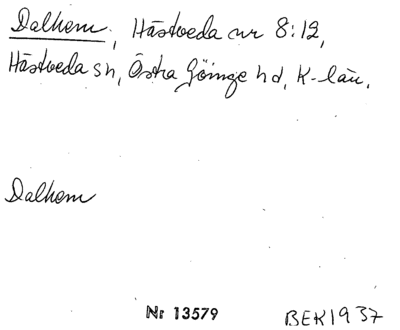 Dalhem, Hästveda nr 8:12,
Hästveda sn, Östra Göinge hd, K-län.
Dalhem
Nr 13579
BEK1937